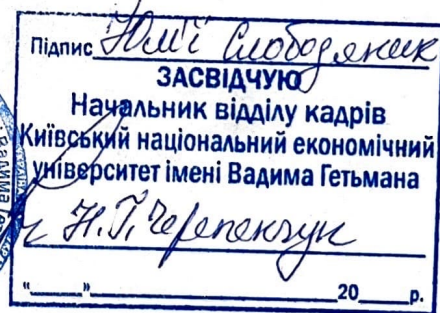 Підпис Юлії Слободяник
ЗАСВІДЧУЮ
Начальник відділу кадрів
Київський національний економічний
університет імені Вадима Гетьмана
Н.Г. Черепенчук
"___"________20___р.